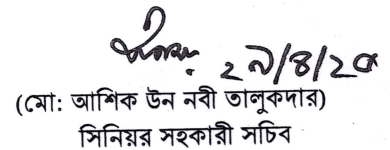 ২৯/৪/২৫
(মো: আশিক উন নবী তালুকদার)
সিনিয়র সহকারী সচিব